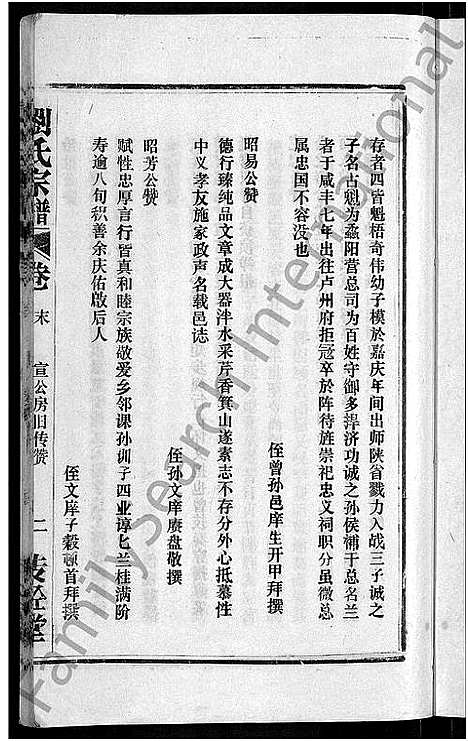 存者四皆魁梧奇伟幼子模於嘉庆年间出师陕省戮力入战三子诚之
子名古魁为蠡阳营总司为百姓守御多捍济功诚之孙侯补千总名兰
者于咸丰七年出往卢州府拒冠卒於阵待旌崇祀忠义祠职分虽微总
属忠国不容没也
侄曾孙邑庠生开甲拜撰
昭易公赞
德行臻纯品文章成大器泮水采芹香箕山遂素志不存分外心抵慕性
中义孝友施家政声名载邑志
侄孙文庠赓盘敬撰
昭芳公赞
赋性忠厚言行皆真和睦宗族敬爱乡邻课孙训子四业谆匕兰桂满阶
寿逾八旬积善余庆佑啟后人
侄文庠子毅顿首拜撰
刘氏宗谱 卷末 宣公房旧传赞 二
FamilySearch International